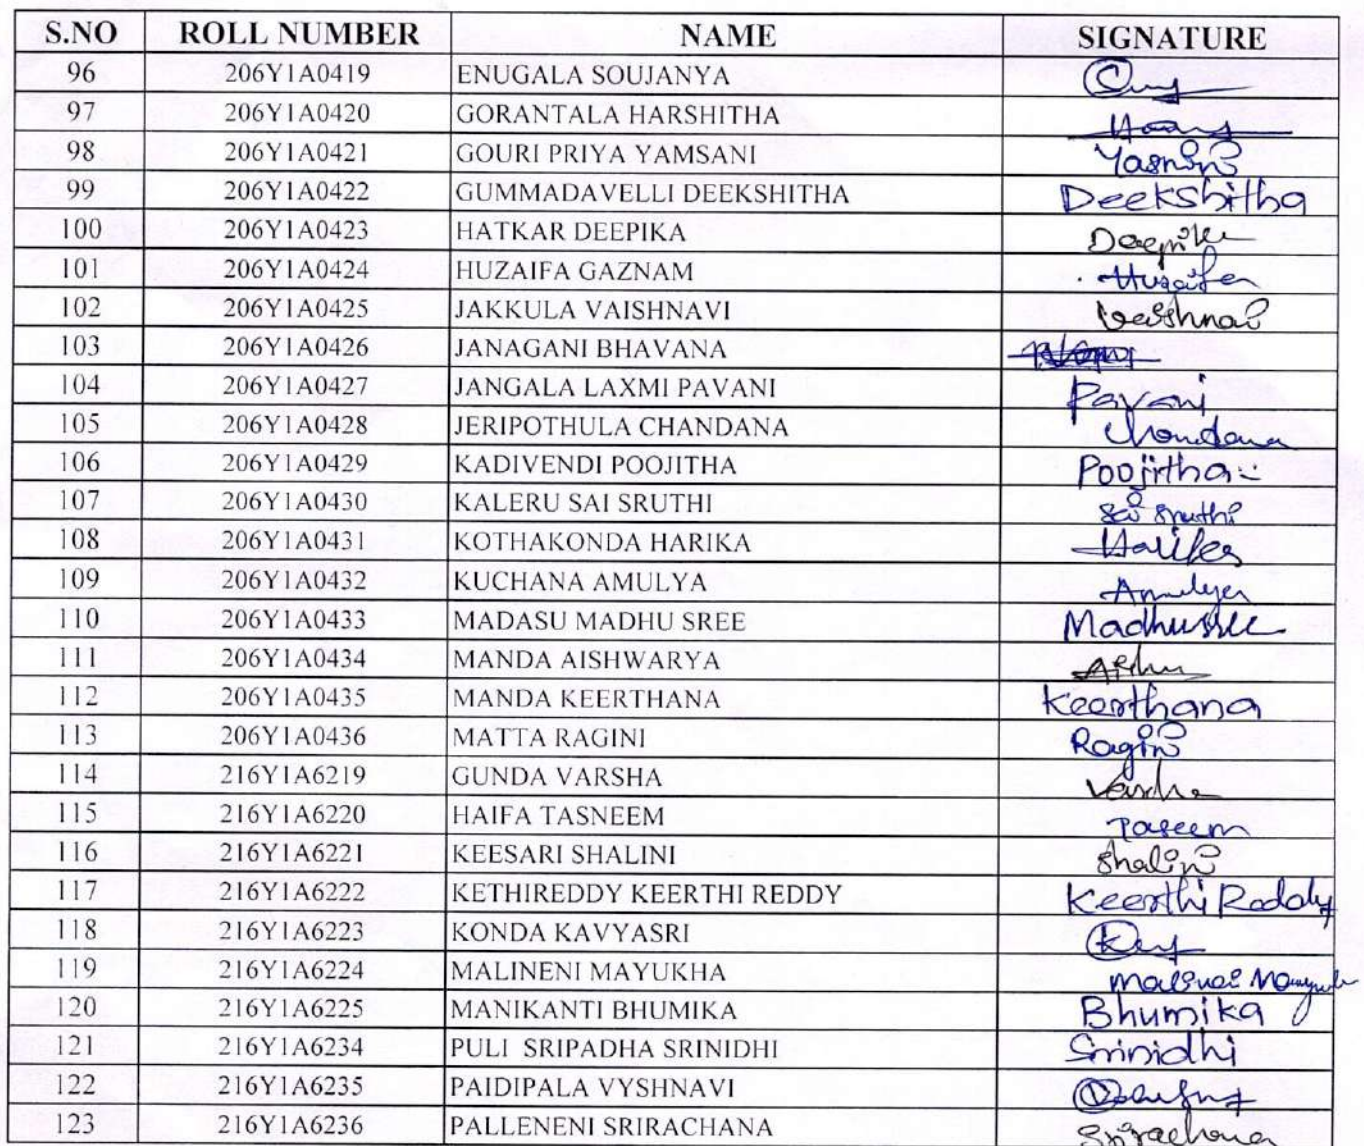 S.NO ROLL NUMBER NAME SIGNATURE
96 206Y1A0419 ENUGALA SOUJANYA
97 206Y1A0420 GORANTALA HARSHITHA
98 206Y1A0421 GOURI PRIYA YAMSANI
99 206Y1A0422 GUMMADAVELLI DEEKSHITHA Deekshitha
100 206Y1A0423 HATKAR DEEPIKA Deepika
101 206Y1A0424 HUZAIFA GAZNAM Huzaifa
102 206Y1A0425 JAKKULA VAISHNAVI
103 206Y1A0426 JANAGANI BHAVANA
104 206Y1A0427 JANGALA LAXMI PAVANI Pavani
105 206Y1A0428 JERIPOTHULA CHANDANA Chandana
106 206Y1A0429 KADIVENDI POOJITHA Poojitha
107 206Y1A0430 KALERU SAI SRUTHI Sai Sruthi
108 206Y1A0431 KOTHAKONDA HARIKA Harika
109 206Y1A0432 KUCHANA AMULYA Amulya
110 206Y1A0433 MADASU MADHU SREE Madhusree
111 206Y1A0434 MANDA AISHWARYA
112 206Y1A0435 MANDA KEERTHANA Keerthana
113 206Y1A0436 MATTA RAGINI Ragini
114 216Y1A6219 GUNDA VARSHA Varsha
115 216Y1A6220 HAIFA TASNEEM
116 216Y1A6221 KEESARI SHALINI Shalini
117 216Y1A6222 KETHIREDDY KEERTHI REDDY Keerthi Reddy
118 216Y1A6223 KONDA KAVYASRI
119 216Y1A6224 MALINENI MAYUKHA
120 216Y1A6225 MANIKANTI BHUMIKA Bhumika
121 216Y1A6234 PULI SRIPADHA SRINIDHI Srinidhi
122 216Y1A6235 PAIDIPALA VYSHNAVI
123 216Y1A6236 PALLENENI SRIRACHANA Srirachana